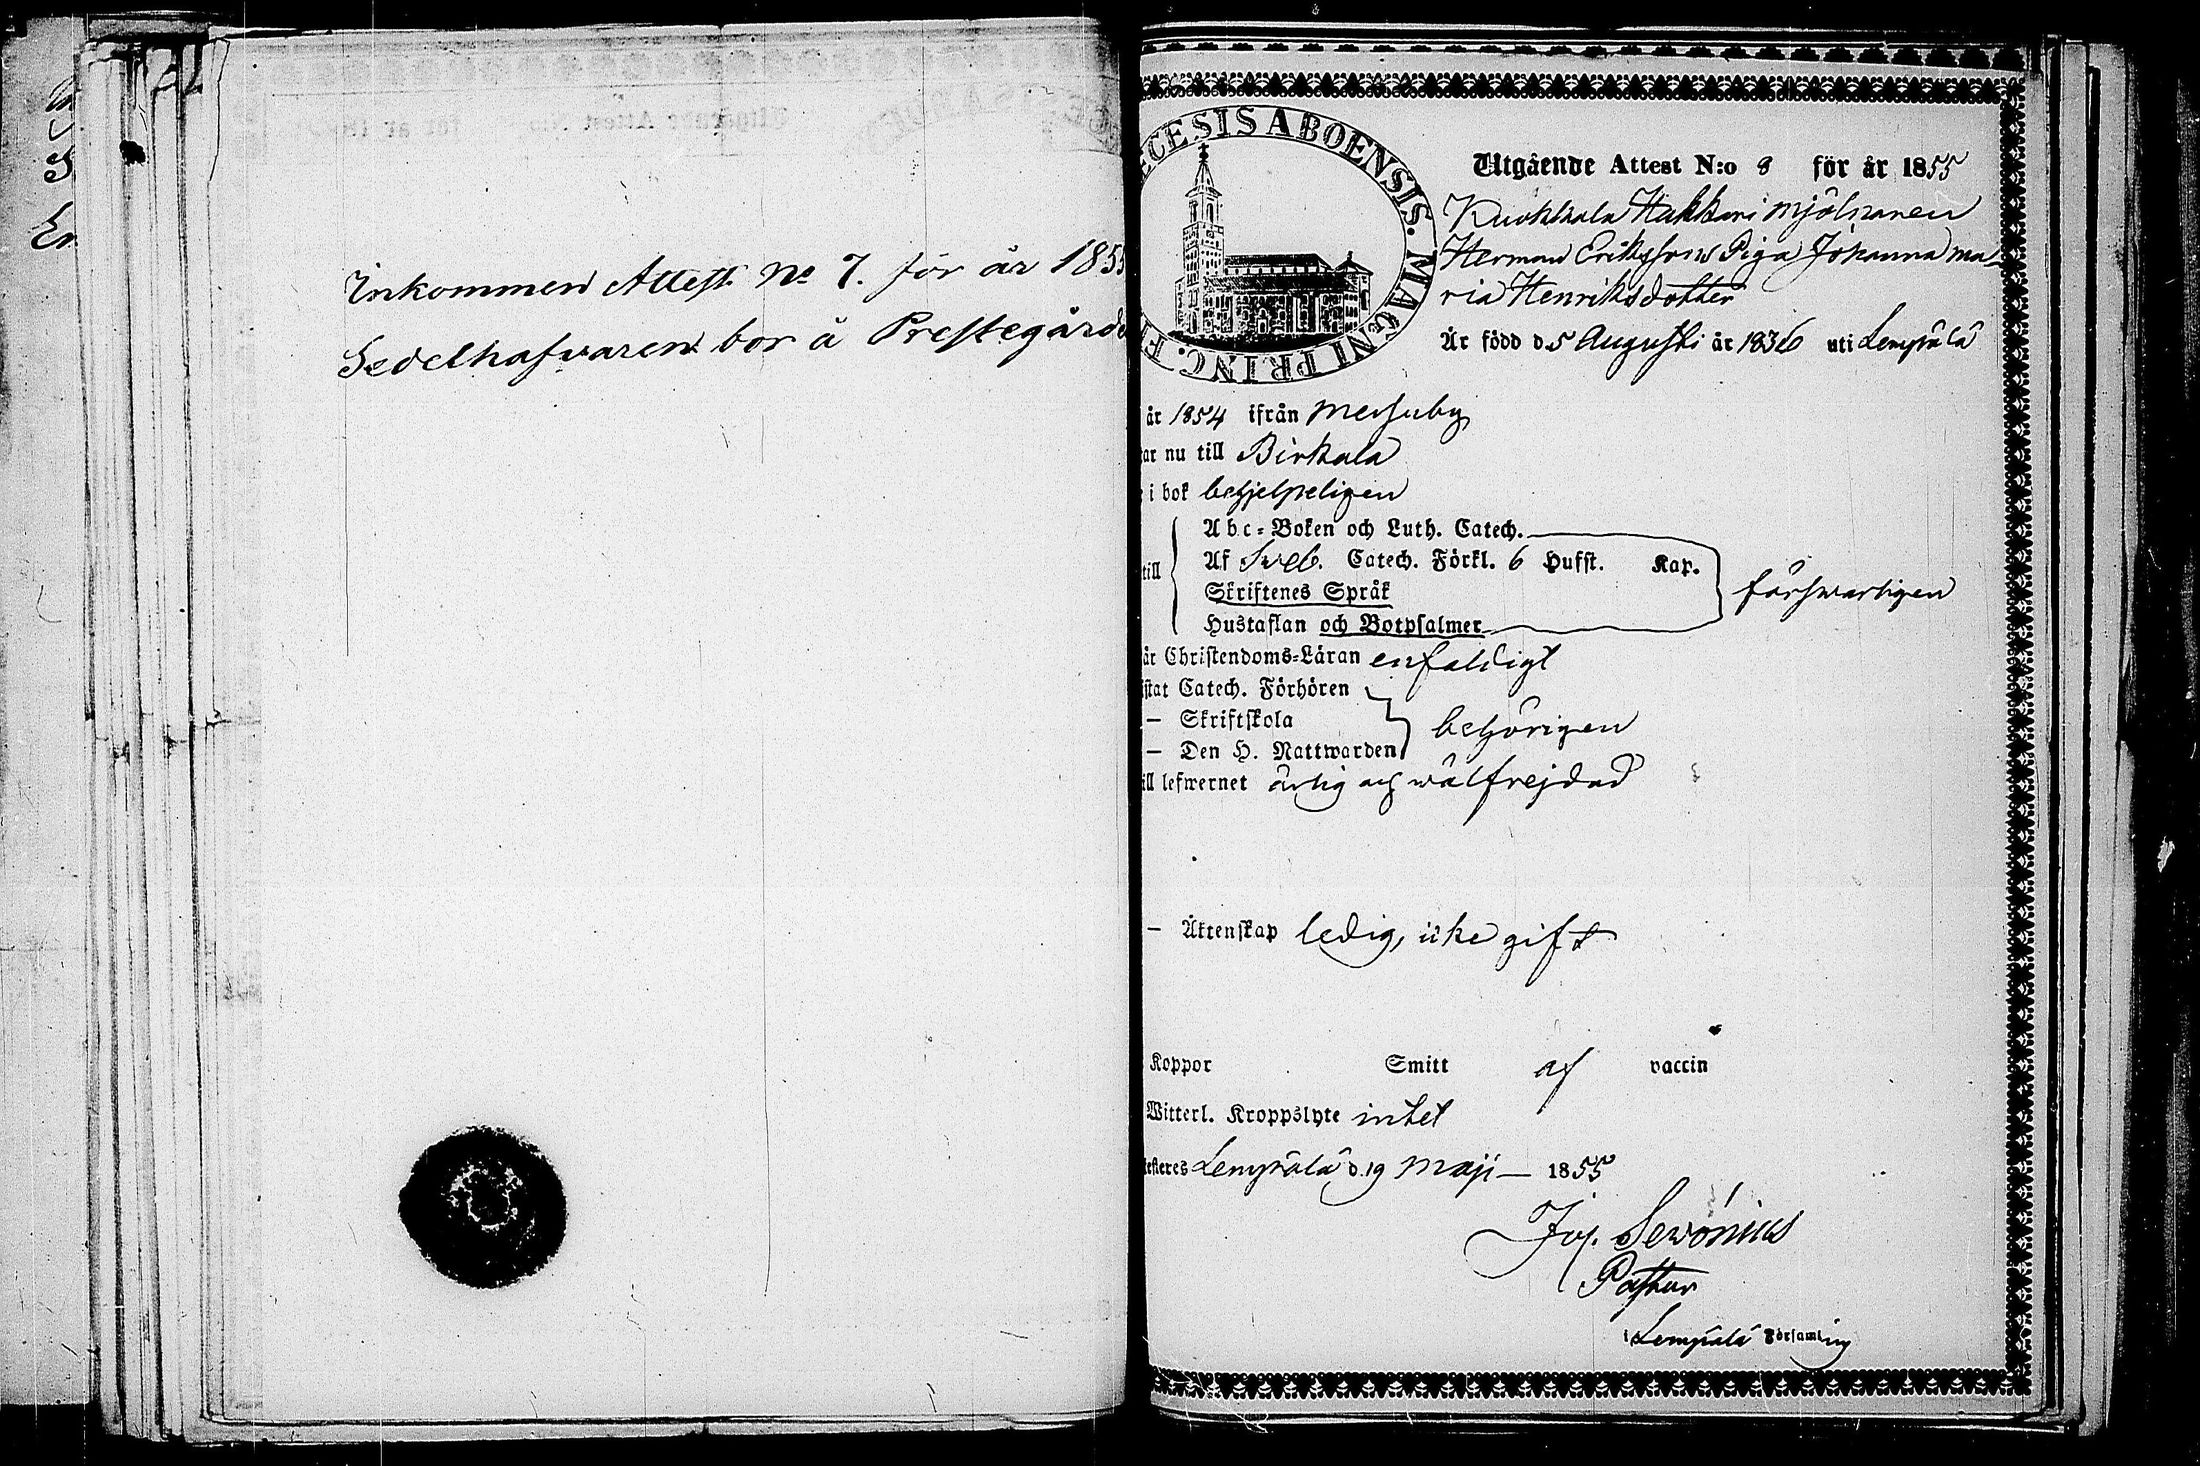 Inkommen Attest No 7. för år 1855
Sedelhafvaren bor å Prestegårde
ECESIS ABOENSIS. MAGNI PRINC. F
Utgående Attest N:o 8 för år 1855
Kuokkala Hakkari mjölnaren
Herman Erikssons Piga Johanna Ma-
ria Henriksdotter
Är född d. 5 Augusti år 1836 uti Lempälä
år 1854 ifrån Messuby
ar nu till Birkala
i bok behjelpeligen
Abc-Boken och Luth. Catech.
till Af Sveb. Catech. Förkl. 6 Hufst. Kap.
Skriftenes Språk
försvarligen
Hustaflan och Botpsalmer
är Christendoms-Läran enfaldigt
istat Catech. Förhören
— Skriftskola
behörigen
— Den H. Nattwarden
ill lefwernet ärlig och wälfrejdad
— Äktenskap ledig, icke gift
Koppor Smitt af vaccin
Witterl. Kroppslyte intet
esteres Lempälä d. 19 Maji — 1855
Jos. Sevonius
Pastor
i Lempälä Församling